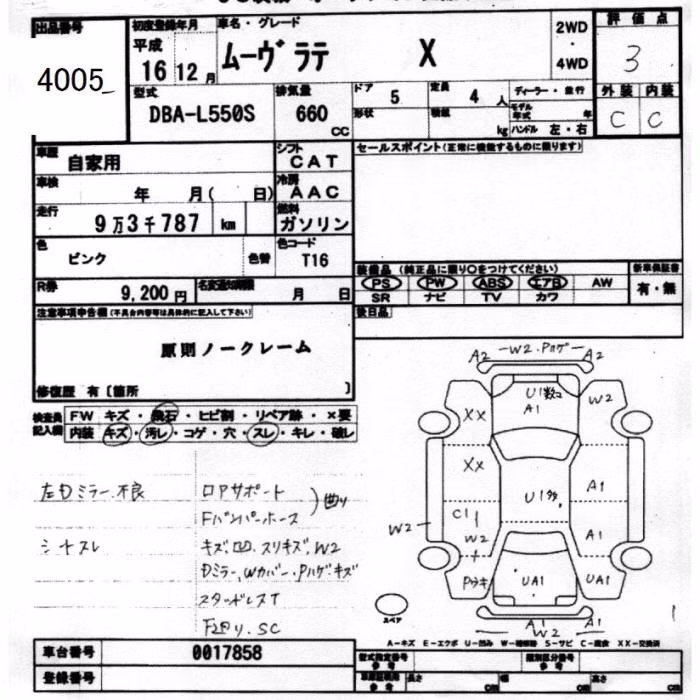 出品番号
4005
初度登録年月
平成
16年12月
車名・グレード
ムーヴ ラテ X
2WD
・
4WD
評価点
3
外装 内装
C C
型式
DBA-L550S
排気量
660
CC
ドア
5
定員
4人
ディーラー・並行
モデル年式 年
形状
積載 kg
ハンドル 左・右
車歴
自家用
シフト
CAT
車検
年 月( 日)
冷房
AAC
走行
9万3千787 km
燃料
ガソリン
色
ピンク
色替
色コード
T16
R券
9,200円
名変通知期限
月 日
セールスポイント(正常に機能するものに限ります)
装備品 (純正品に限り○をつけてください)
PS PW ABS エアB AW
SR ナビ TV カワ
新車保証書
有・無
後日品
注意事項申告欄(不具合内容等は具体的に記入して下さい)
原則ノークレーム
修復歴 有〔箇所 〕
検査員記入欄
FW キズ・飛石・ヒビ割・リペア跡・×要
内装 キズ・汚レ・コゲ・穴・スレ・キレ・破レ
左Dミラー不良
シートスレ
ロアサポート
Fバンパーホース
曲り
キズ凹、スリキズ、W2
Dミラー、Wカバー、Pハゲ・キズ
スタッドレスT
F廻り、SC
A2 W2、Pハゲ A2
U1数コ
A1
XX
W2
XX
A1
U1多
C1
W2
A1
W2
Pウキ
UA1
UA1
A1 W2 A1
スペア
A-キズ E-エクボ U-凹み W-補修跡 S-サビ C-腐食 XX-交換済
車台番号
0017858
登録番号
型式指定番号
参考
類別区分番号
参考
車庫証明用
参考
長さ cm
幅 cm
高さ cm